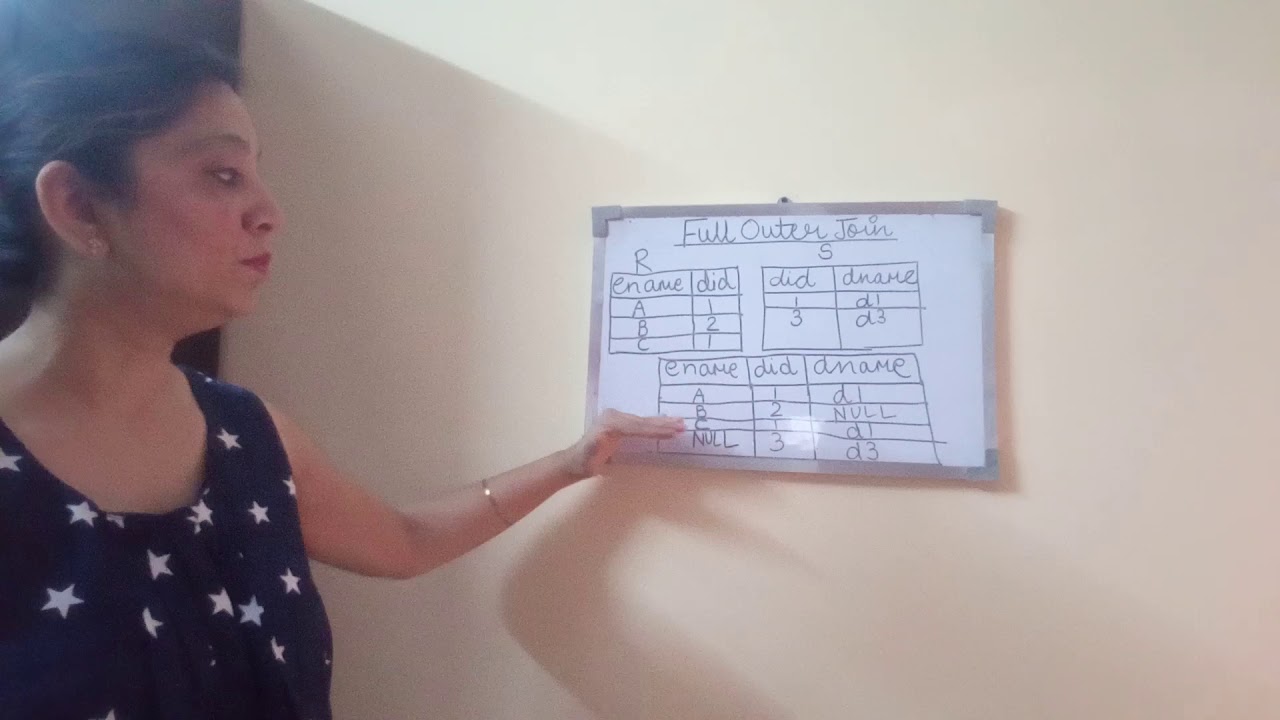 Full Outer Join
R S
ename did did dname
A 1 1 d1
B 2 3 d3
C 1
ename did dname
A 1 d1
B 2 NULL
C 1 d1
NULL 3 d3